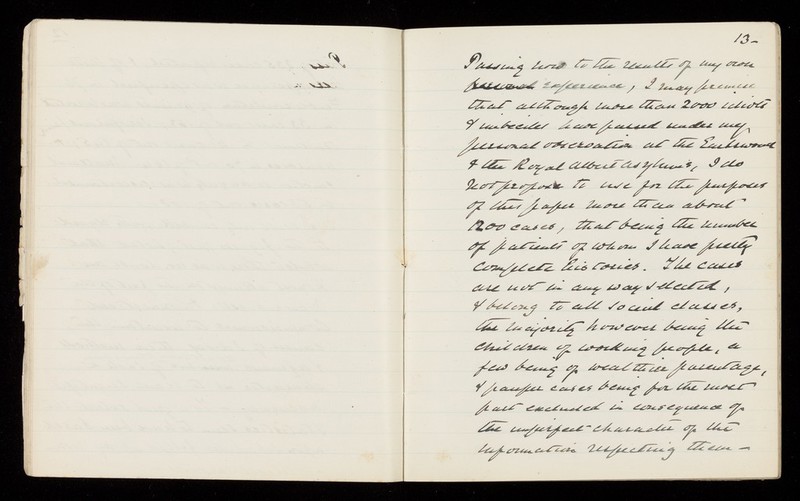 13-
Passing now to the results of my own
personal experience, I may premise
that although more than 2000 idiots
& imbeciles have passed under my
personal observation at the Earlswood
& the Royal Albert Asylums, I do
not propose to use for the purposes
of this paper more than about
1200 cases, that being the number
of patients of whom I have pretty
complete histories. The cases
are not in any way selected,
& belong to all social classes,
the majority however being the
children of working people, a
few being of wealthier parentage,
& pauper cases being for the most
part excluded in consequence of
the imperfect character of the
information respecting them -